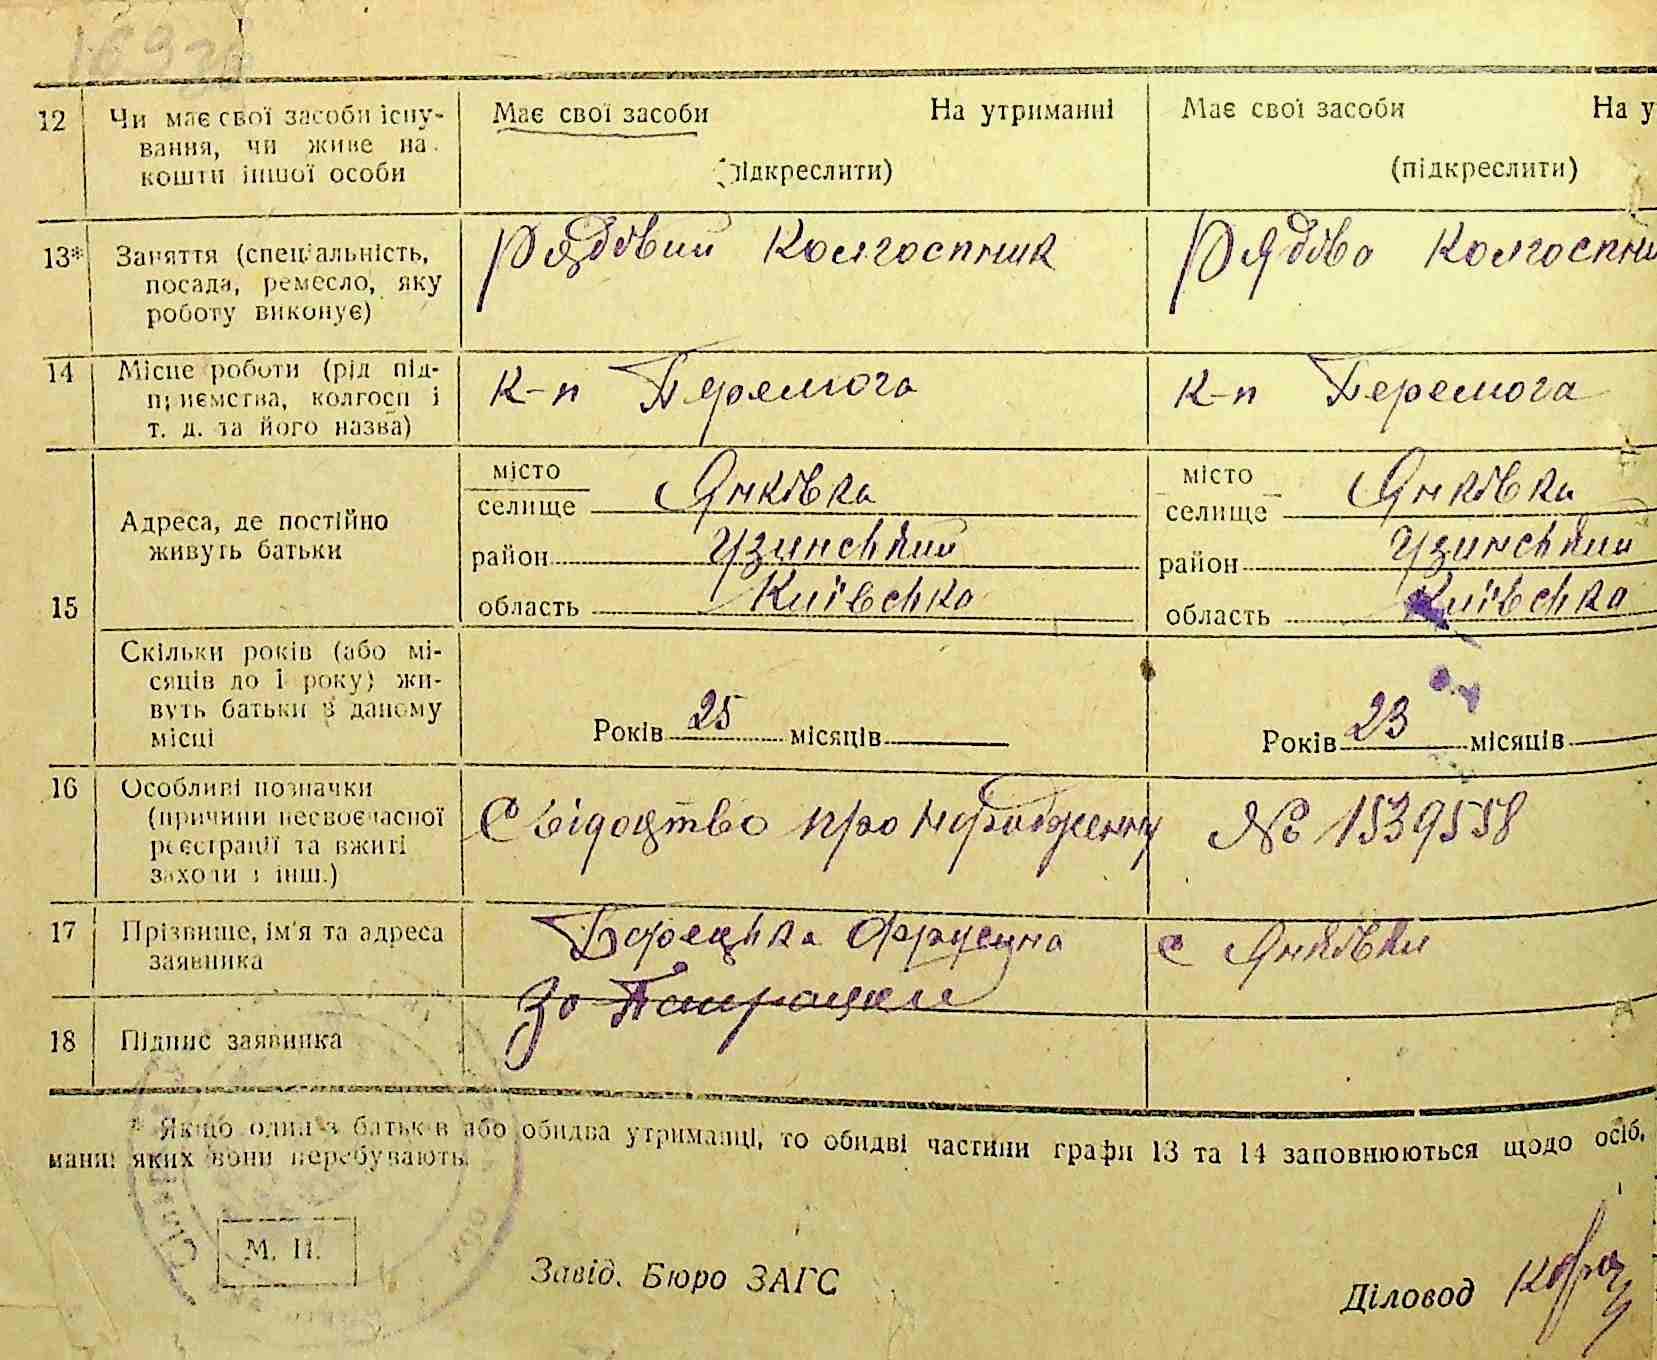 12 Чи має свої засоби існу-
вання, чи живе на
кошти іншої особи
Має свої засоби На утриманні
(підкреслити)
Має свої засоби На у
(підкреслити)
13* Заняття (спеціальність,
посада, ремесло, яку
роботу виконує)
Рядовий Колгоспник
Рядова Колгоспни
14 Місце роботи (рід під-
приємства, колгосп і
т. д. та його назва)
к-п Перемога
к-п Перемога
15 Адреса, де постійно
живуть батьки
місто
селище Янківка
район Узинський
область Київська
місто
селище Янківка
район Узинський
область Київська
Скільки років (або мі-
сяців до 1 року) жи-
вуть батьки в даному
місці
Років 25 місяців
Років 23 місяців
16 Особливі позначки
(причини несвоєчасної
реєстрації та вжиті
заходи і інш.)
Свідоцтво про народження № 1539558
17 Прізвище, ім'я та адреса
заявника
с Янківки
18 Підпис заявника
За
* Якщо один з батьків або обидва утриманці, то обидві частини графи 13 та 14 заповнюються щодо осіб,
манні яких вони перебувають.
М. П.
Завід. Бюро ЗАГС
Діловод